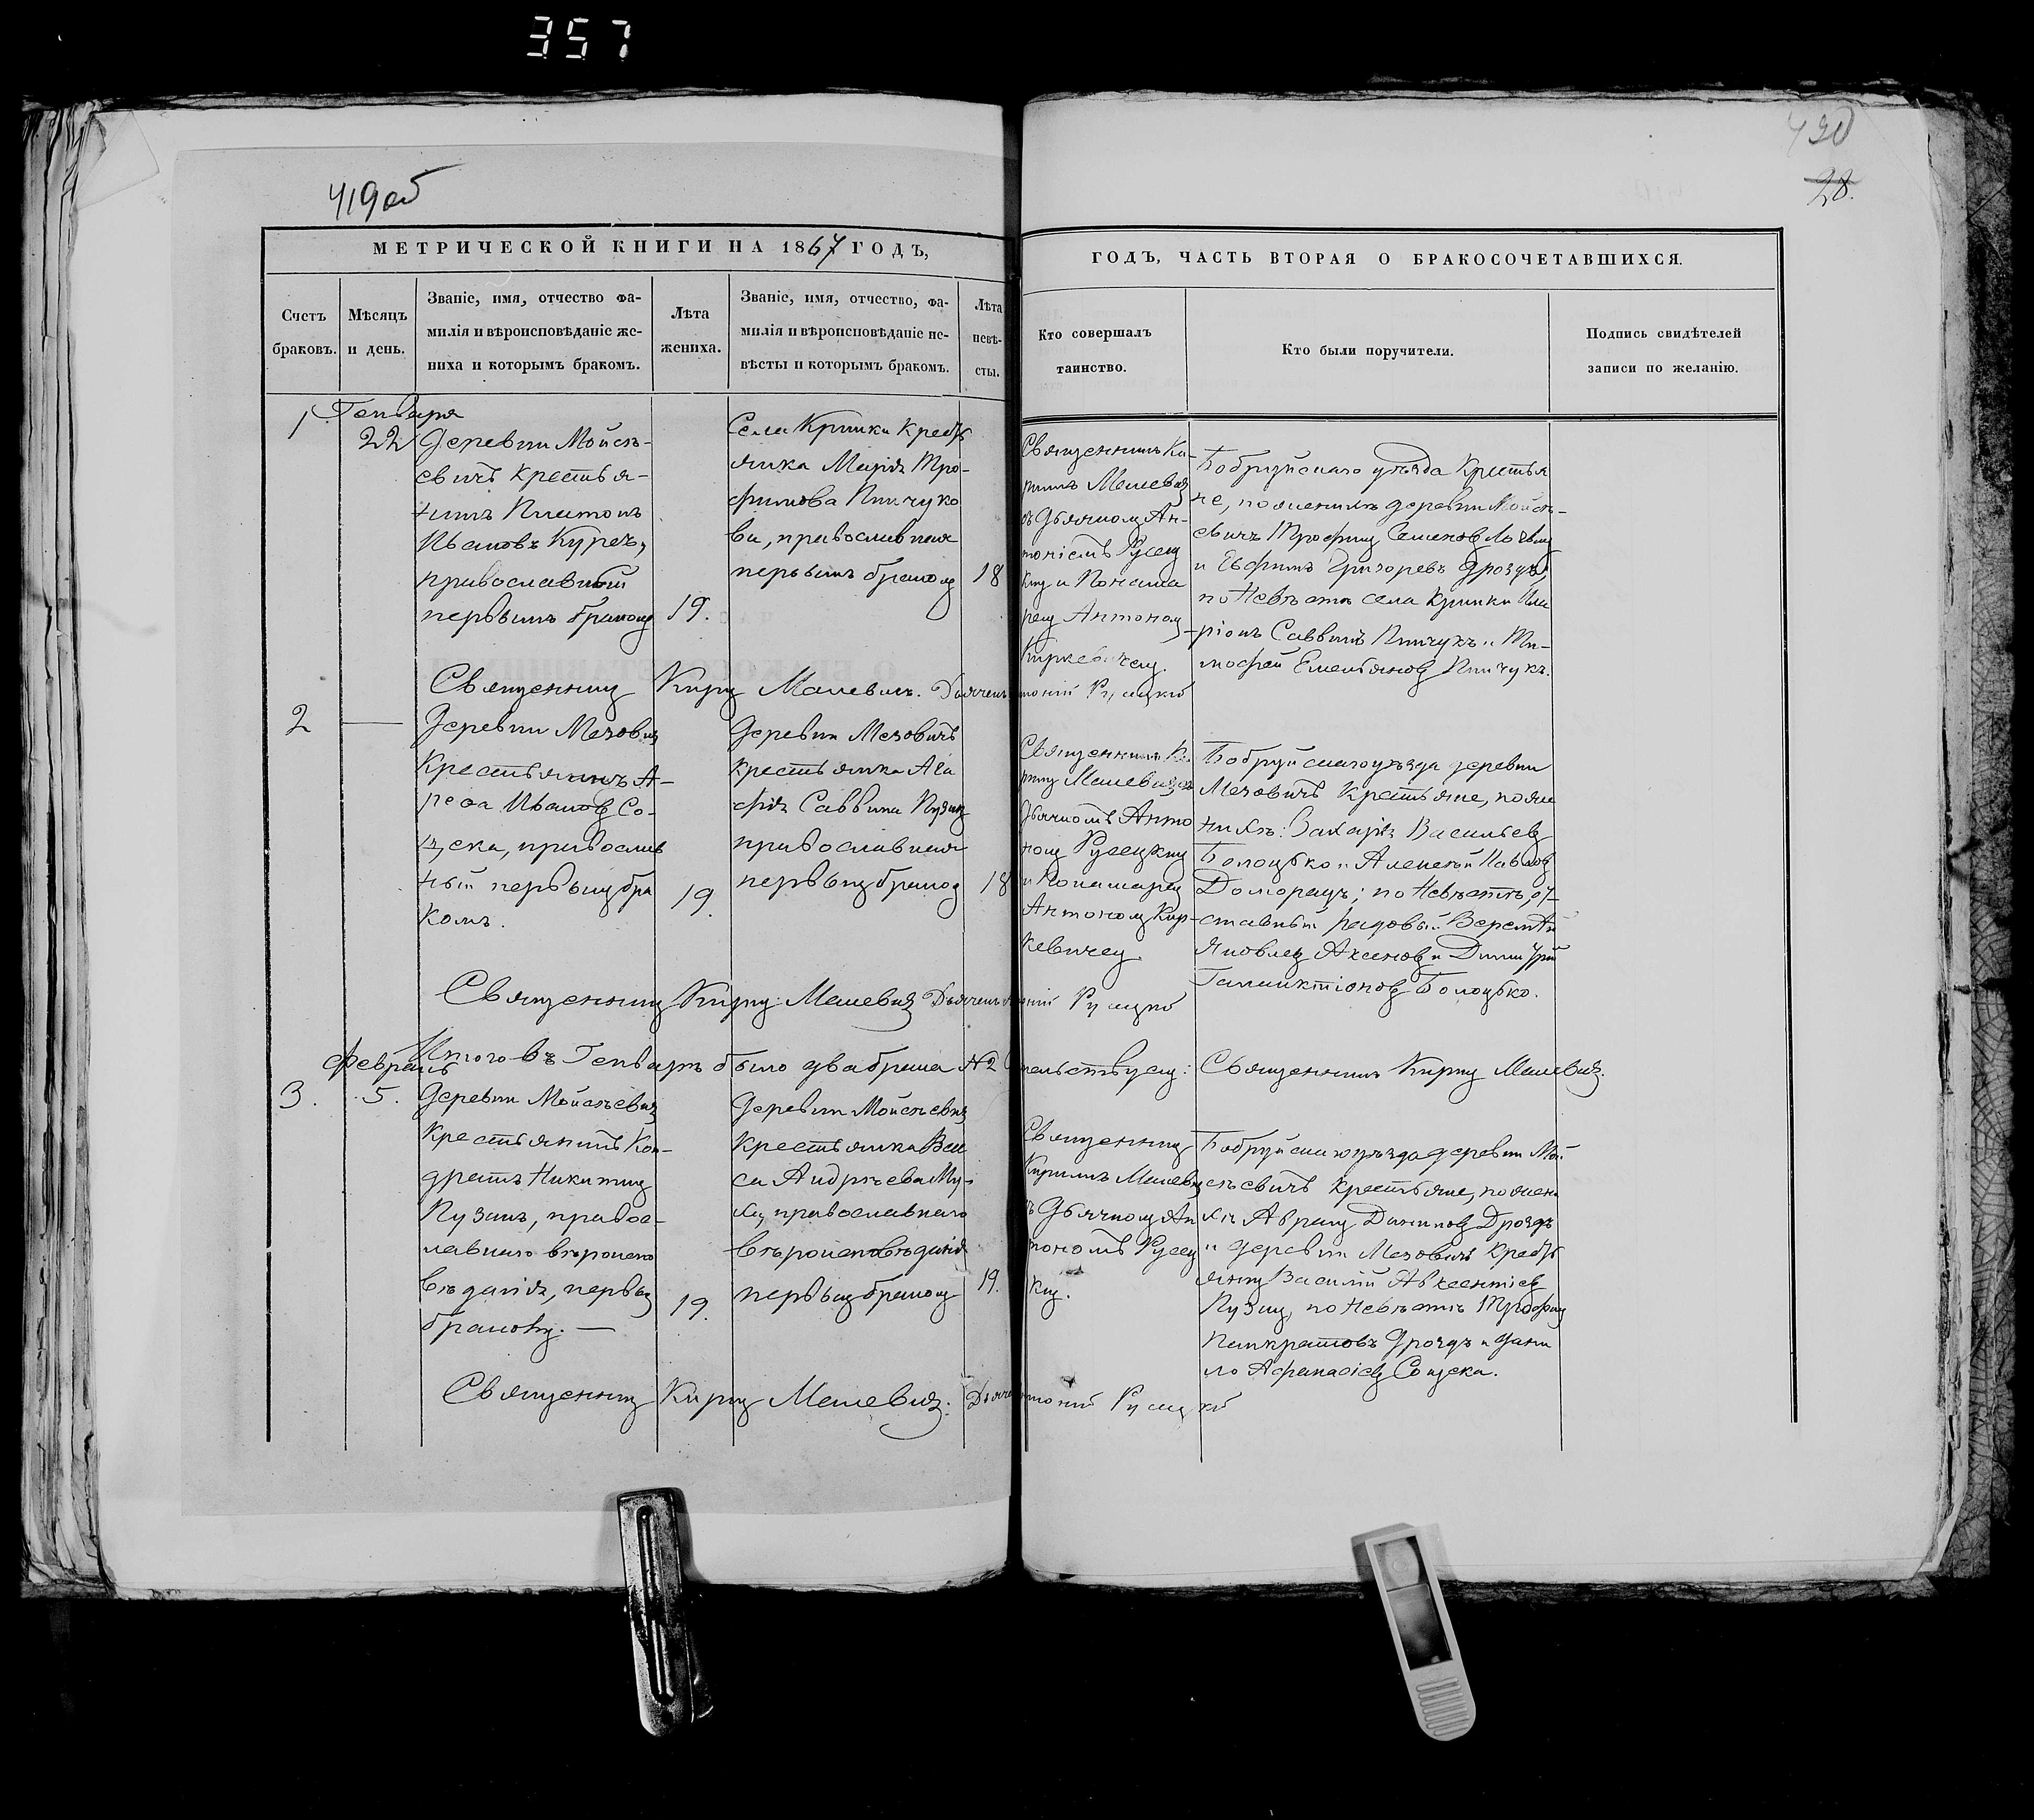 357
419об
420
28.
МЕТРИЧЕСКОЙ КНИГИ НА 1867 ГОДЪ,
ГОДЪ, ЧАСТЬ ВТОРАЯ О БРАКОСОЧЕТАВШИХСЯ.
Счетъ
браковъ.
Мѣсяцъ
и день.
Званіе, имя, отчество фа-
милія и вѣроисповѣданіе же-
ниха и которымъ бракомъ.
Лѣта
жениха.
Званіе, имя, отчество, фа-
милія и вѣроисповѣданіе не-
вѣсты и которымъ бракомъ.
Лѣта
невѣ-
сты.
Кто совершалъ
таинство.
Кто были поручители.
Подпись свидѣтелей
записи по желанію.
1
Генваря
22
Деревни Мойсѣ-
евичъ крестья-
нинъ Платонъ
Ивановъ Куречъ,
православный
первымъ бракомъ
19.
Села Кринки крестья
янка Марія Тро-
фимова Пинчуко
ва, православная
первымъ бракомъ
18
Священникъ Ки-
риллъ Малевичъ
съ Дьячкомъ Ан-
тоніемъ Русец
кимъ и Понама
ремъ Антономъ
Киркевичемъ.
Бобруйскаго уѣзда крестья
не, по женихѣ деревни Мойсѣ-
евичъ Трофимъ Семеновъ
и Евфимъ Григорьевъ Дроздъ,
по Невѣстѣ села Кринки Ила
ріонъ Саввинъ Пинчукъ и Ти-
мофей Емельяновъ Пинчукъ.
Священникъ Кирилъ Малевичъ. Дьячекъ Антоній Русецкій
2
Деревни Мезовичъ
Крестьянинъ А-
рефа Ивановъ Со-
цека, православ
ный первымъ бра
комъ.
19.
Деревни Мезовичъ
крестьянка Ага
фія Саввина
православная
первымъ бракомъ
18
Священникъ Ки
рилъ Малевичъ съ
Дьячкомъ Анто
ніемъ Русецкимъ
и Понамаремъ
Антономъ Кир-
кевичемъ.
Бобруйскаго уѣзда деревни
Мезовичъ крестьяне, по же
нихѣ: Захарія Васильевъ
Болоцько и Алексѣй Павловъ
Доморацъ; по Невѣстѣ, от-
ставный рядовый
Яковлевъ Аксеновъ и Димитрій
Галактіоновъ Болоцько.
Священникъ Кирилъ Малевичъ Дьячекъ Антоній Русецкій
Итого въ Генварѣ было два брака №2 Священникъ Кирилъ Малевичъ.
3.
Февраль
5.
Деревни Мойсѣевичъ
Крестьянинъ Кон-
дратъ Никитинъ
Пузанъ, правос-
лавнаго вѣроиспо
вѣданія, первымъ
бракомъ. —
19.
Деревни Мойсѣевичъ
Крестьянка Вас
са Андрѣева Му-
ха, православнаго
вѣроисповѣданія
первымъ бракомъ
19.
Священникъ
Кириллъ Малевичъ
съ Дьячкомъ Ан
тономъ Русец
кимъ.
Бобруйскаго уѣзда деревни Мой
сѣевичъ крестьяне, по жени
хѣ Аврамъ Даниловъ Дроздъ
и деревни Мезовичъ кресть
янинъ Василій Авксентіевъ
Пузанъ, по Невѣстѣ Трофимъ
Панкратовъ Дроздъ и Дани
ло Афанасіевъ Соцека.
Священникъ Кирилъ Малевичъ. Дьячекъ Антоній Русецкій